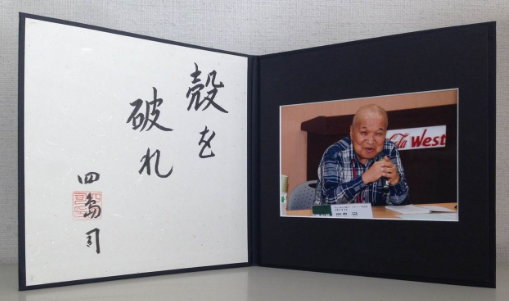 殻を
破れ
四島司
West